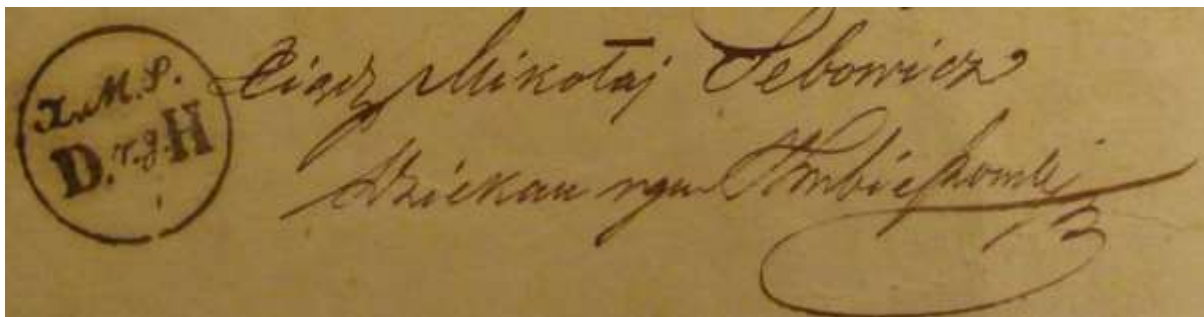 X. M. S.
D. r. g. H
Xiądz Mikołaj Sebowicz
Dziekan rgu Hrubieszowski